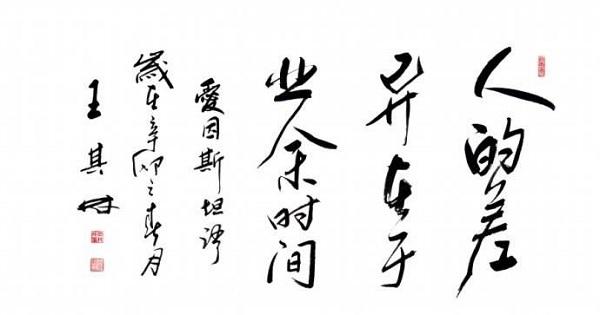 人的差
异在于
业余时间
愛因斯坦语
歲在辛卯之春月
王其